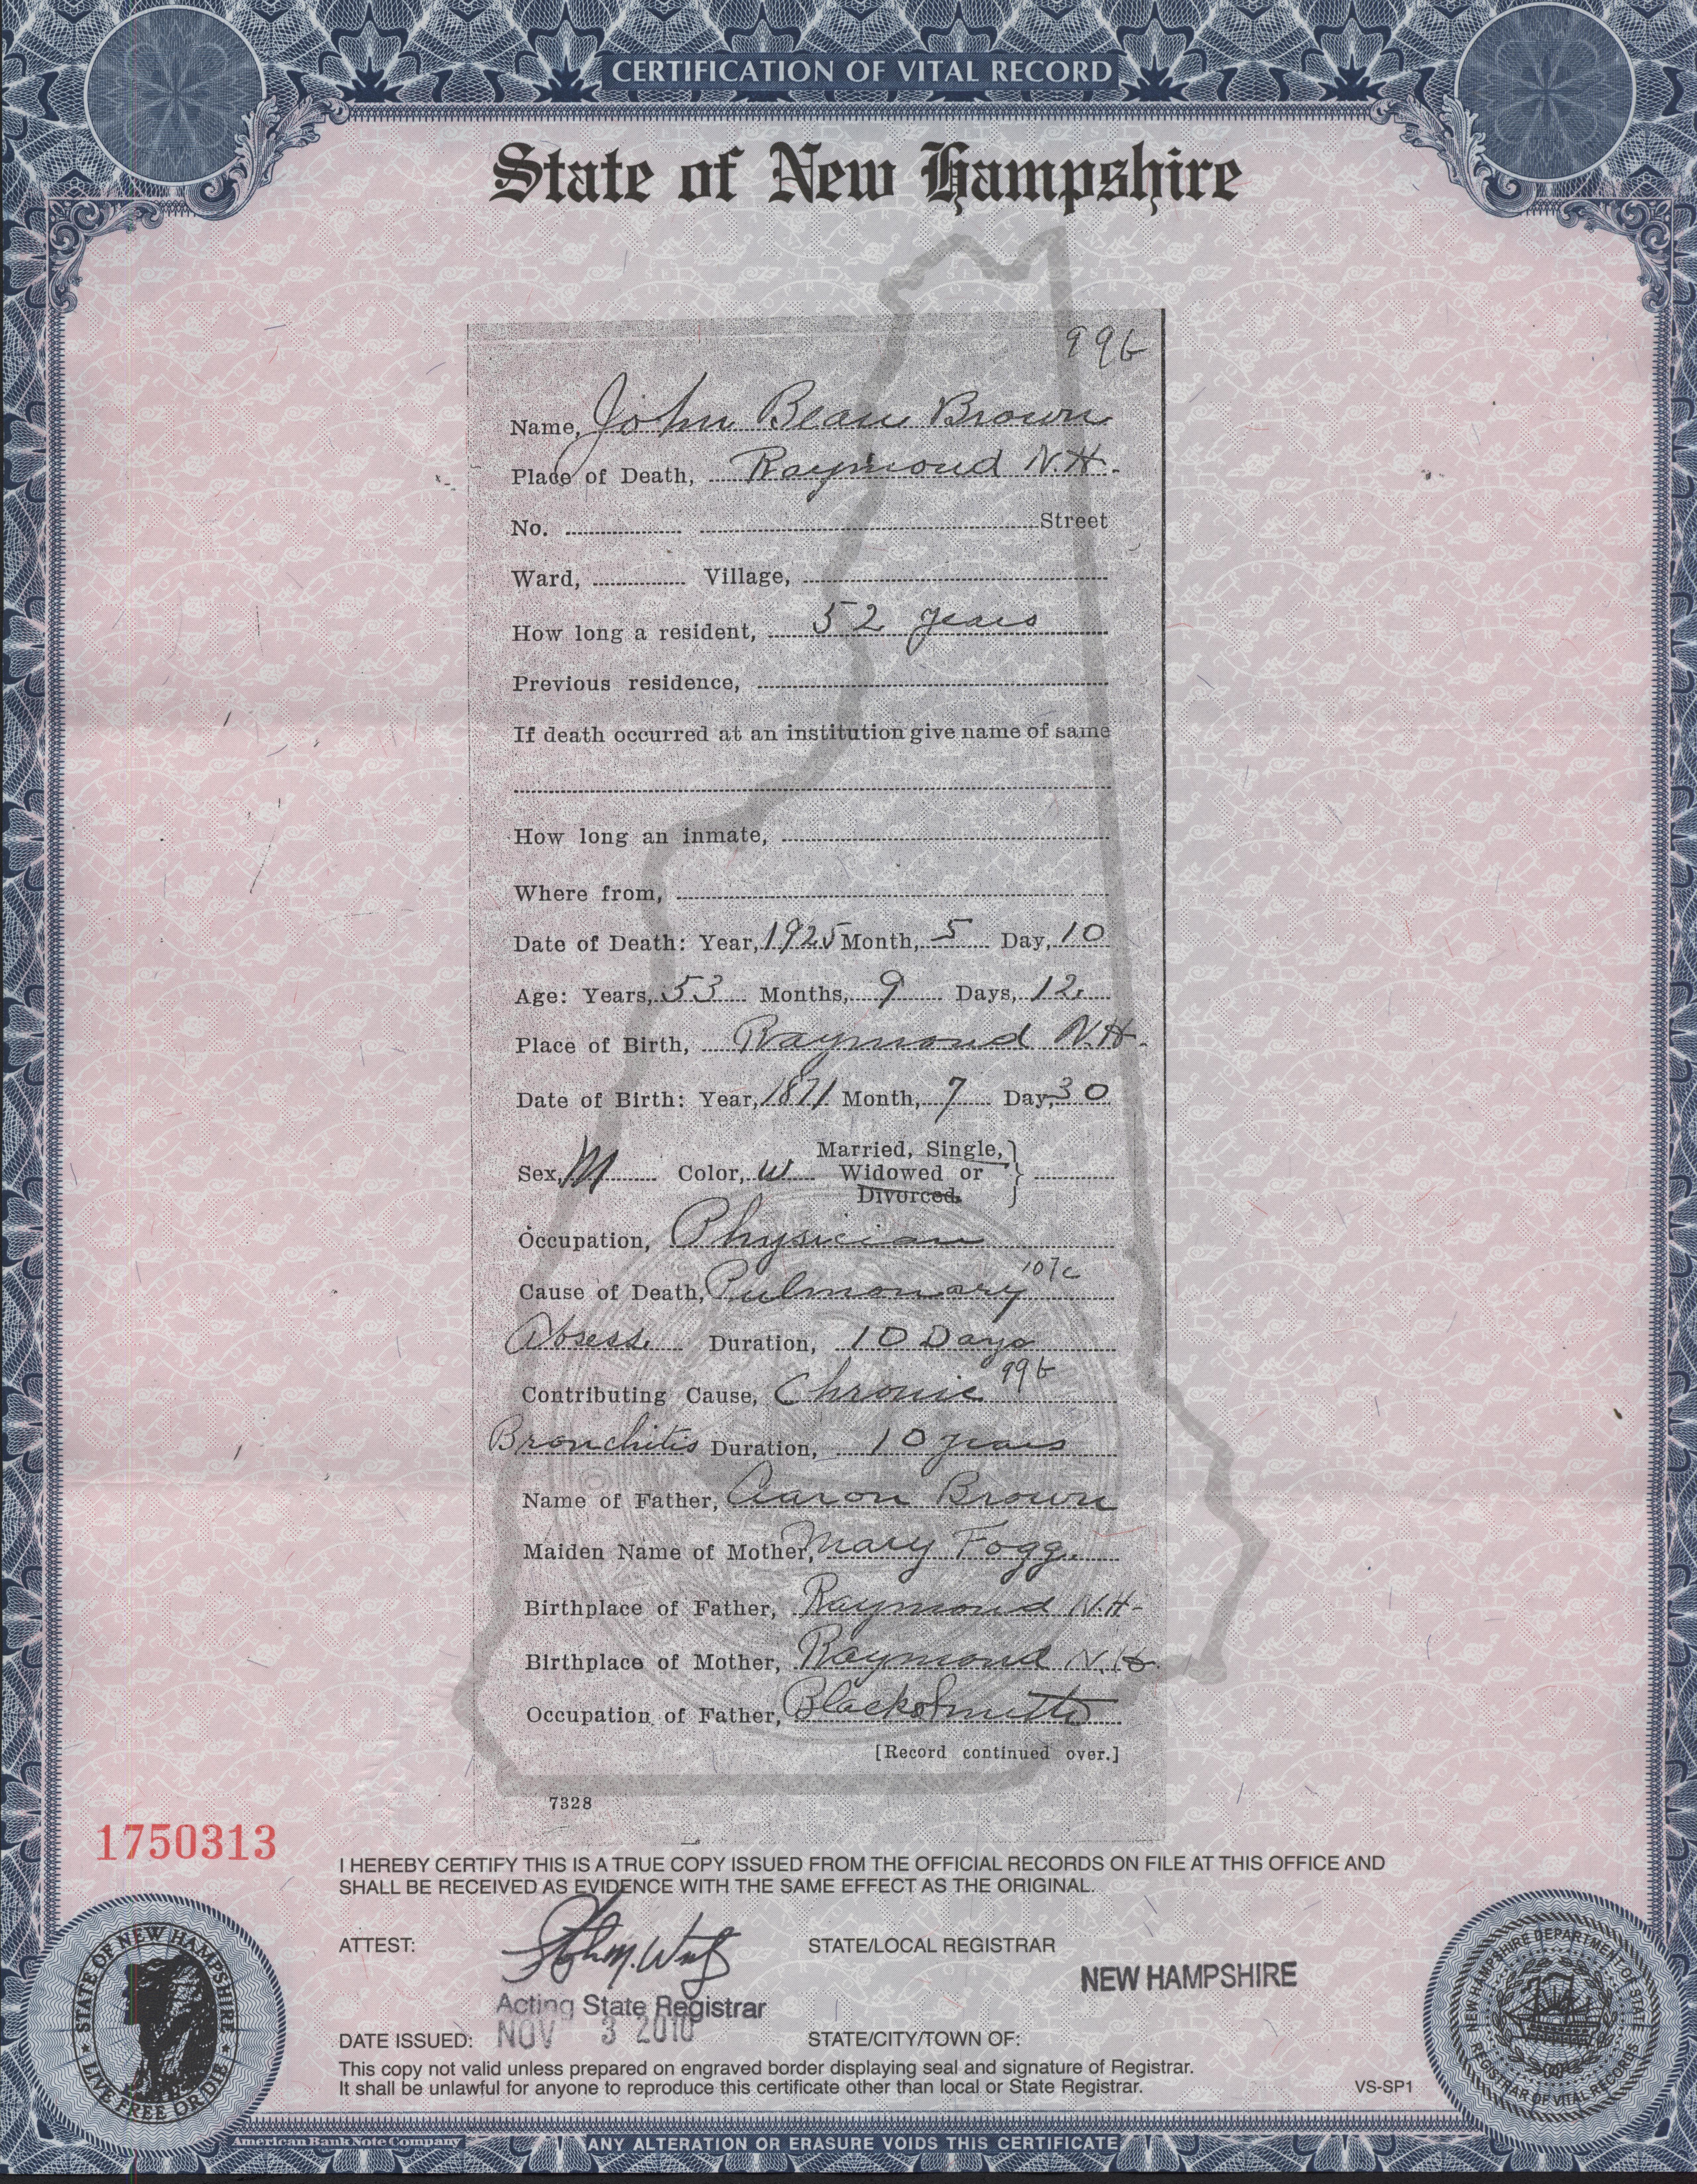 CERTIFICATION OF VITAL RECORD
State of New Hampshire
99b
Name, John Bean Brown
Place of Death, Raymond N.H.
No. Street
Ward, Village,
How long a resident, 52 years
Previous residence,
If death occurred at an institution give name of same
How long an inmate,
Where from,
Date of Death: Year, 1925 Month, 5 Day, 10
Age: Years, 53 Months, 9 Days, 12
Place of Birth, Raymond N.H.
Date of Birth: Year, 1871 Month, 7 Day, 30
Married, Single,
Sex, M Color, W Widowed or
Divorced.
Occupation, Physician
107c
Cause of Death, Pulmonary
Absess Duration, 10 Days
99b
Contributing Cause, Chronic
Bronchitis Duration, 10 years
Name of Father, Aaron Brown
Maiden Name of Mother, Mary Fogg.
Birthplace of Father, Raymond N.H-
Birthplace of Mother, Raymond N.H.
Occupation of Father, BlackSmith
[Record continued over.]
7328
1750313
I HEREBY CERTIFY THIS IS A TRUE COPY ISSUED FROM THE OFFICIAL RECORDS ON FILE AT THIS OFFICE AND
SHALL BE RECEIVED AS EVIDENCE WITH THE SAME EFFECT AS THE ORIGINAL.
ATTEST: STATE/LOCAL REGISTRAR
NEW HAMPSHIRE
Acting State Registrar
DATE ISSUED: NOV 3 2010 STATE/CITY/TOWN OF:
This copy not valid unless prepared on engraved border displaying seal and signature of Registrar.
It shall be unlawful for anyone to reproduce this certificate other than local or State Registrar.
VS-SP1
STATE OF NEW HAMPSHIRE
LIVE FREE OR DIE
NEW HAMPSHIRE DEPARTMENT OF STATE
REGISTRAR OF VITAL RECORDS
American Bank Note Company
ANY ALTERATION OR ERASURE VOIDS THIS CERTIFICATE